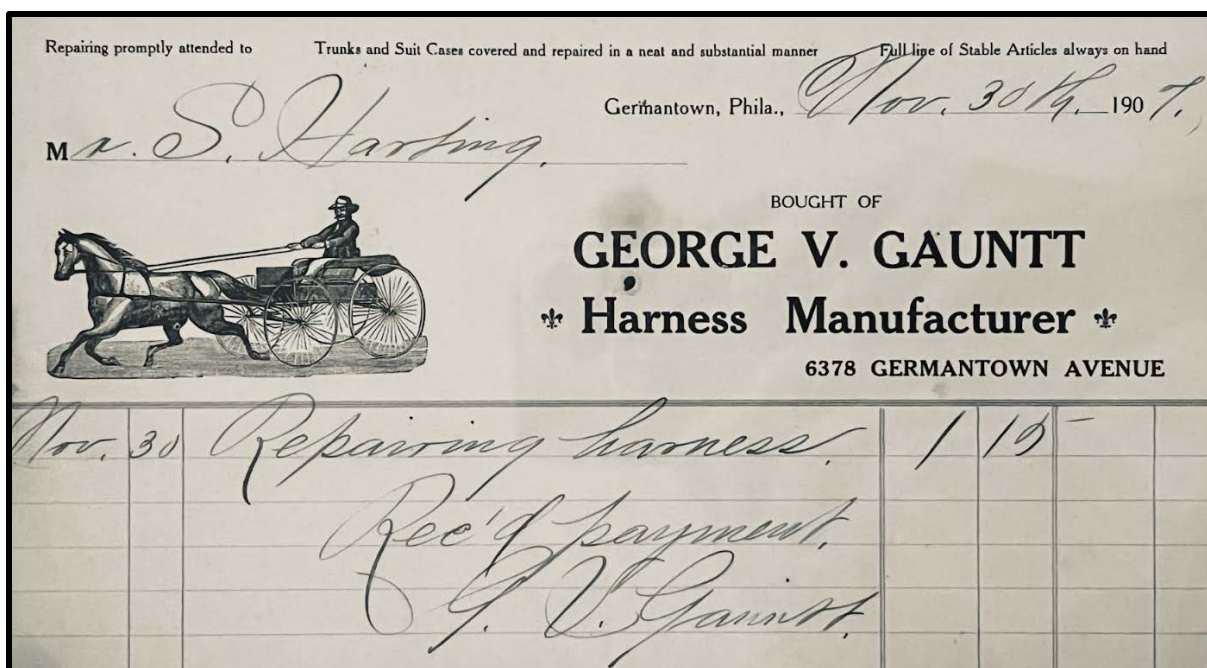 Repairing promptly attended to Trunks and Suit Cases covered and repaired in a neat and substantial manner Full line of Stable Articles always on hand
Germantown, Phila., Nov. 30th. 1907.
Mr. S. Harting.
BOUGHT OF
GEORGE V. GAUNTT
Harness Manufacturer
6378 GERMANTOWN AVENUE
Nov. 30 Repairing harness. 1 15
Rec'd payment.
G. V. Gauntt.